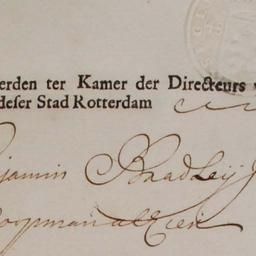 erden ter Kamer der Directeurs v
deſer Stad Rotterdam
jamin Bradley J
oopman alhier